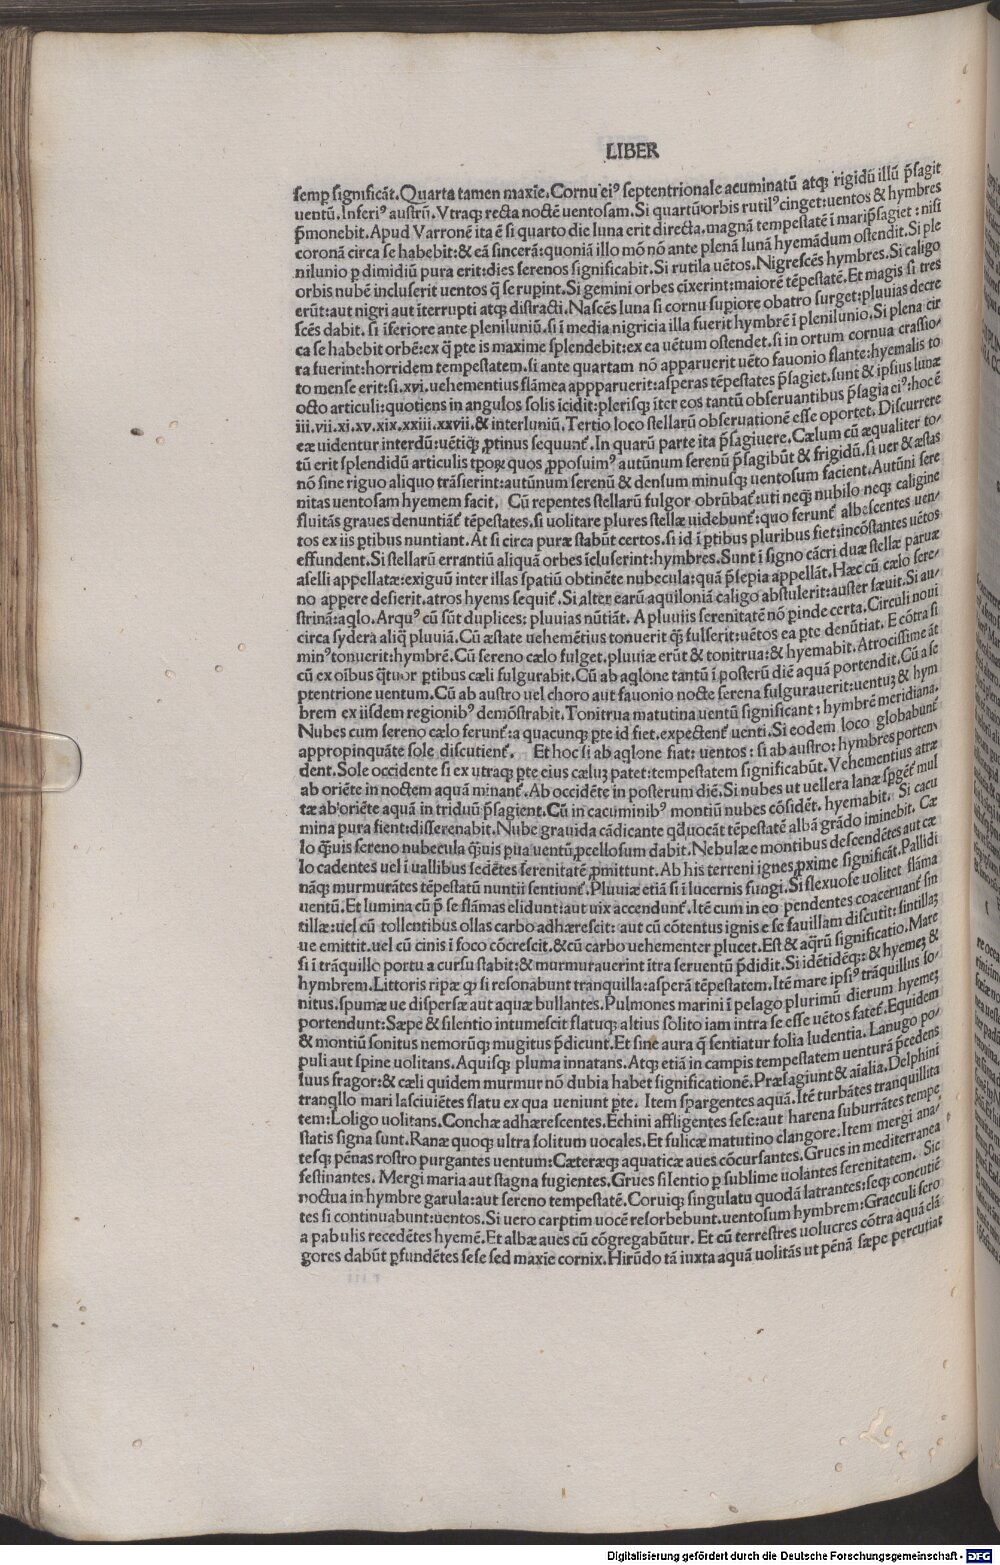 LIBER
semp significāt.Quarta tamen maxīe.Cornu eiꝰ septentrionale acuminatū atqꝫ rigidū illū p̄sagit
uentū.Inferiꝰ austrū.Vtraqꝫ recta noctē uentosam.Si quartū orbis rutilꝰ cinget:uentos & hymbres
p̄monebit.Apud Varronē ita ē si quarto die luna erit directa.magnā tempestatē ī mari p̄sagiet:nisi
coronā circa se habebit:& eā sincerā:quoniā illo mō nō ante plenā lunā hyemādum ostendit.Si ple
nilunio p dimidiū pura erit:dies serenos significabit.Si rutila uētos.Nigrescēs hymbres.Si caligo
orbis nubē incluserit uentos q̄ se ruꝑint.Si gemini orbes cīxerint:maiorē tēpestatē.Et magis si tres
erūt:aut nigri aut iterrupti atqꝫ distracti.Nascēs luna si cornu supiore obatro surget:pluuias decre
scēs dabit.si īferiore ante pleniluniū.si ī media nigricia illa fuerit hymbrē ī plenilunio.Si plena cir
ca se habebit orbē:ex q̄ pte is maxime splendebit:ex ea uētum ostendet.si in ortum cornua crassio/
ra fuerint:horridem tempestatem.si ante quartam nō apparuerit uēto fauonio flante:hyemalis to
to mense erit:si.xvi.uehementius flāmea appparuerit:asperas tēpestates p̄sagiet.sunt & ipsius lunæ
octo articuli:quotiens in angulos solis īcidit:plerisqꝫ īter eos tantū obseruantibus p̄sagia eiꝰ:hoc ē
iii.vii.xi.xv.xix.xxiii.xxvii.& interluniū.Tertio loco stellarū obseruationē esse oportet.Discurrere
eæ uidentur interdū:uētiqꝫ ꝓtinus sequunt᷑.In quarū parte ita p̄sagiuere.Cælum cū æqualiter to/
tū erit splendidū articulis tpoꝝ quos ꝓposuimꝰ autūnum serenū p̄sagibūt & frigidū.si uer & æstas
nō sine riguo aliquo trāsierint:autūnum serenū & densum minusqꝫ uentosum facient.Autūni sere
nitas uentosam hyemem facit. Cū repentes stellarū fulgor obrūbat᷑:uti neqꝫ nubilo neqꝫ caligine
fluitās graues denuntiāt᷑ tēpestates.si uolitare plures stellæ uidebunt᷑:quo ferunt᷑ albescentes uen/
tos ex iis ꝑtibus nuntiant.At si circa puræ stabūt certos.si id ī ꝑtibus pluribus fiet:incōstantes uētos
effundent.Si stellarū errantiū aliquā orbes īcluserint:hymbres.Sunt ī signo cācri duæ stellæ paruæ
aselli appellatæ:exiguū inter illas spatiū obtinēte nubecula:quā p̄sepia appellāt.Hæc cū cælo sere/
no apꝑere desierit.atros hyems sequit᷑.Si alter earū aquiloniā caligo abstulerit:auster sæuit.Si au/
strinā:aqlo.Arquꝰ cū sūt duplices:pluuias nūtiāt.A pluuiis serenitatē nō ꝑinde certa.Circuli noui
circa sydera aliq̄ pluuiā.Cū æstate uehemētius tonuerit q̄ꝫ fulserit:uētos ea pte denūtiat.E cōtra si
minꝰ tonuerit:hymbrē.Cū sereno cælo fulget.pluuiæ erūt & tonitrua:& hyemabit.Atrocissime āt
cū ex oībus q̄tuor ꝑtibus cæli fulgurabit.Cū ab aqlone tantū ī posterū diē aquā portendit.Cū a se
ptentrione uentum.Cū ab austro uel choro aut fauonio nocte serena fulgurauerit:uentuꝫ & hym
brem ex iisdem regionibꝰ demōstrabit.Tonitrua matutina uentū significant:hymbrē meridiana.
Nubes cum sereno cælo ferunt᷑:a quacunqꝫ pte id fiet.expectent᷑ uenti.Si eodem loco globabunt᷑
appropinquāte sole discutient᷑. Et hoc si ab aqlone fiat:uentos:si ab austro:hymbres porten/
dent.Sole occidente si ex utraqꝫ pte eius cæluꝫ patet:tempestatem significabūt.Vehementius atræ
ab oriēte in noctem aquā minant᷑.Ab occidēte in posterum diē.Si nubes ut uellera lanæ spget᷑ mul
tæ ab oriēte aquā in triduū p̄sagient.Cū in cacuminibꝰ montiū nubes cōsidēt.hyemabit. Si cacu
mina pura fient:disserenabit.Nube grauida cādicante qd uocāt tēpestatē albā grādo iminebit.Cæ
lo q̄ꝫuis sereno nubecula q̄ꝫuis ꝑua uentū ꝓcellosum dabit.Nebulæ e montibus descendētes aut cæ
lo cadentes uel ī uallibus sedētes serenitatē ꝓmittunt.Ab his terreni ignes ꝓxime significāt.Pallidi
nāqꝫ murmurātes tēpestatū nuntii sentiunt᷑.Pluuiæ etiā si ī lucernis fungi.Si flexuose uolitet flāma
uentū.Et lumina cū p̄ se flāmas elidunt:aut uix accendunt᷑.Itē cum in eo pendentes coaceruant᷑ sin
tillæ:uel cū tollentibus ollas carbo adhærescit:aut cū cōtentus ignis e se fauillam discutit:sintillaꝫ
ue emittit.uel cū cinis ī foco cōcrescit.& cū carbo uehementer plucet.Est & aq̄rū significatio.Mare
si ī trāquillo portu a cursu stabit:& murmurauerint ītra seruentū p̄didit.Si idētidēqꝫ:& hyemeꝫ &
hymbrem.Littoris ripæ qꝫ si resonabunt tranquilla:asperā tēpestatem.Itē mare ipsiꝰ trāquillus so/
nitus.spumæ ue dispersæ aut aquæ bullantes.Pulmones marini ī pelago plurimū dierum hyemeꝫ
portendunt:Sæpe & silentio intumescit flatuqꝫ altius solito iam intra se esse uētos fatet᷑.Equidem
& montiū sonitus nemorūqꝫ mugitus p̄dicunt.Et sine aura q̄ sentiatur folia ludentia.Lanugo po/
puli aut spine uolitans.Aquisqꝫ pluma innatans.Atqꝫ etiā in campis tempestatem uenturā p̄cedens
suus fragor:& cæli quidem murmur nō dubia habet significationē.Præsagiunt & aīalia.Delphini
tranqllo mari lasciuiētes flatu ex qua ueniunt pte. Item spargentes aquā.Itē turbātes tranquillita
tem:Loligo uolitans.Conchæ adhærescentes.Echini affligentes sese:aut harena suburrātes tempe
statis signa sunt.Ranæ quoqꝫ ultra solitum uocales.Et fulicæ matutino clangore.Item mergi ana/
tesqꝫ pēnas rostro purgantes uentum:Cæteræqꝫ aquaticæ aues cōcursantes.Grues in mediterranea
festinantes. Mergi maria aut stagna fugientes.Grues silentio p sublime uolantes serenitatem. Sic
noctua in hymbre garula:aut sereno tempestatē.Coruiqꝫ singulatu quodā latrantes:seqꝫ concutiē
tes si continuabunt:uentos.Si uero carptim uocē resorbebunt.uentosum hymbrem:Gracculi sero
a pabulis recedētes hyemē.Et albæ aues cū cōgregabūtur. Et cū terrestres uolucres cōtra aquā clā
gores dabūt ꝑfundētes sese sed maxīe cornix.Hirūdo tā iuxta aquā uolitās ut pēnā sæpe percutiat
Digitalisierung gefördert durch die Deutsche Forschungsgemeinschaft - DFG